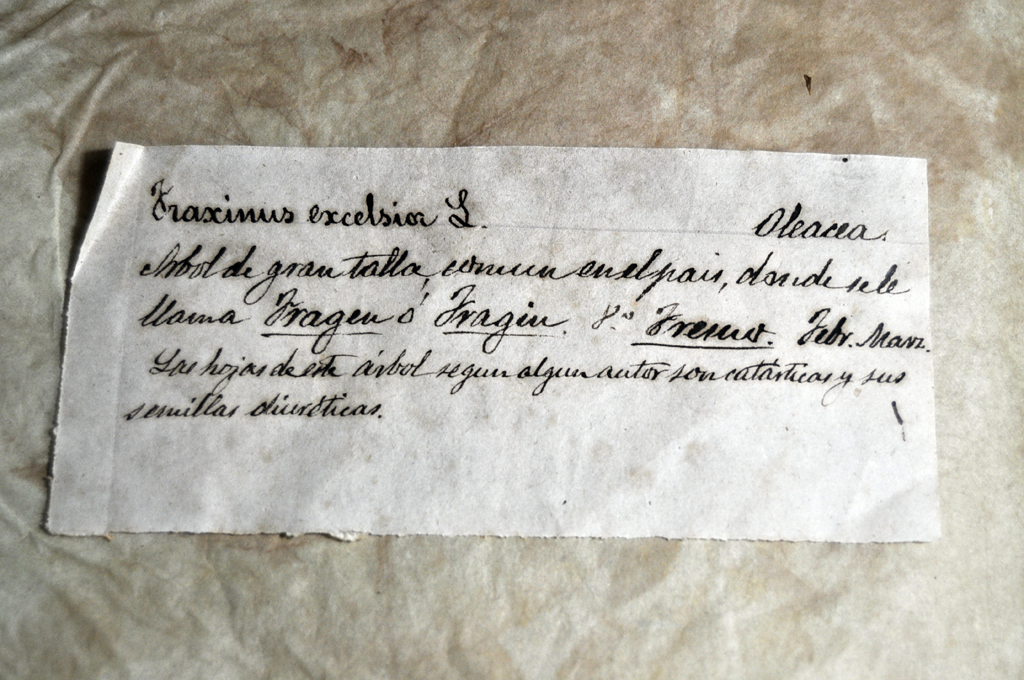 Fraxinus excelsior L. Oleacea.
Arbol de gran talla, comun en el pais, donde se le
llama Fragen ó Fragin. Fresno. Febr. Marz.
Las hojas de este árbol segun algun autor son catárticas y sus
semillas diuréticas.